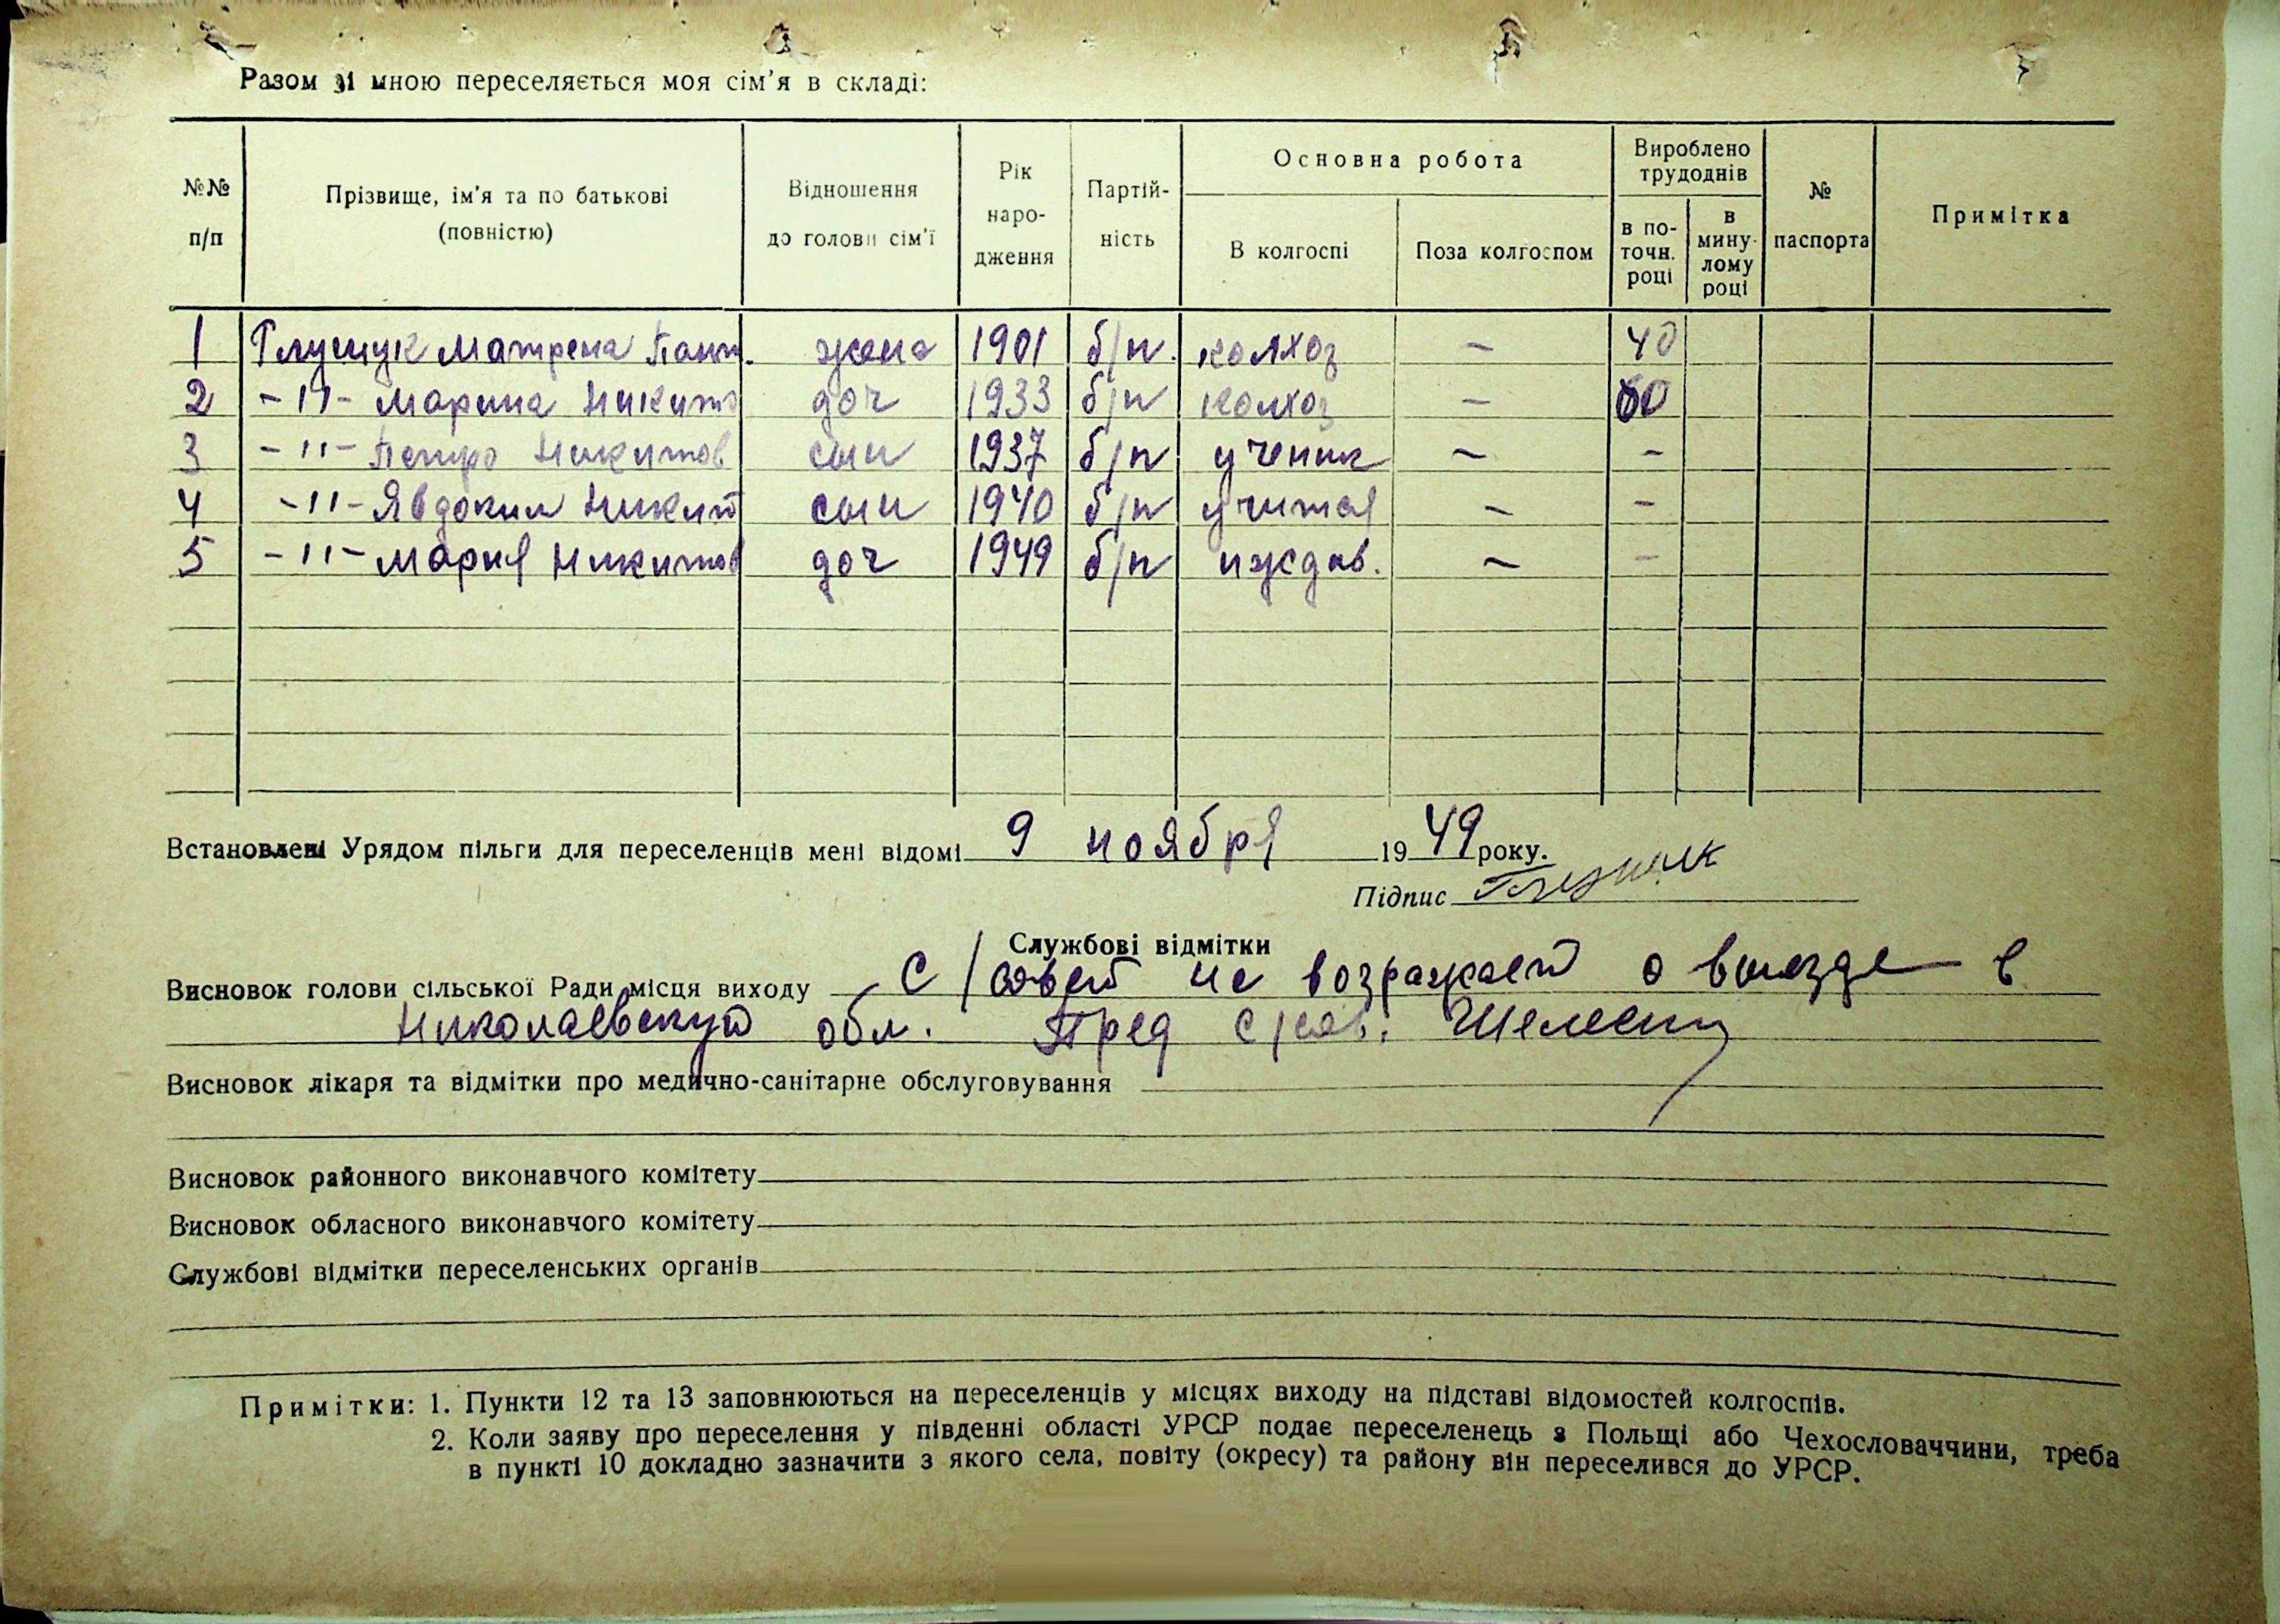 Разом зі мною переселяється моя сім'я в складі:
№№ п/п
Прізвище, ім'я та по батькові (повністю)
Відношення до голови сім'ї
Рік народження
Партійність
Основна робота
В колгоспі
Поза колгоспом
Вироблено трудоднів
в поточн. році
в минулому році
№ паспорта
Примітка
1 Глущук Матрена Пант. жена 1901 б/п. колхоз — 40
2 -"- Марина Никит доч 1933 б/п колхоз — 60
3 -"- Петро Никитов сын 1937 б/п ученик — -
4 -"- Явдоким Никит сын 1940 б/п учится — -
5 -"- Мария Никитов доч 1949 б/п иждив. — -
Встановлені Урядом пільги для переселенців мені відомі 9 ноября 1949 року.
Підпис
Службові відмітки
Висновок голови сільської Ради місця виходу С/совет не возражает о выезде в
Николаевскую обл. Пред с/сов.
Висновок лікаря та відмітки про медично-санітарне обслуговування
Висновок районного виконавчого комітету
Висновок обласного виконавчого комітету
Службові відмітки переселенських органів
Примітки: 1. Пункти 12 та 13 заповнюються на переселенців у місцях виходу на підставі відомостей колгоспів.
2. Коли заяву про переселення у південні області УРСР подає переселенець з Польщі або Чехословаччини, треба
в пункті 10 докладно зазначити з якого села, повіту (окресу) та району він переселився до УРСР.